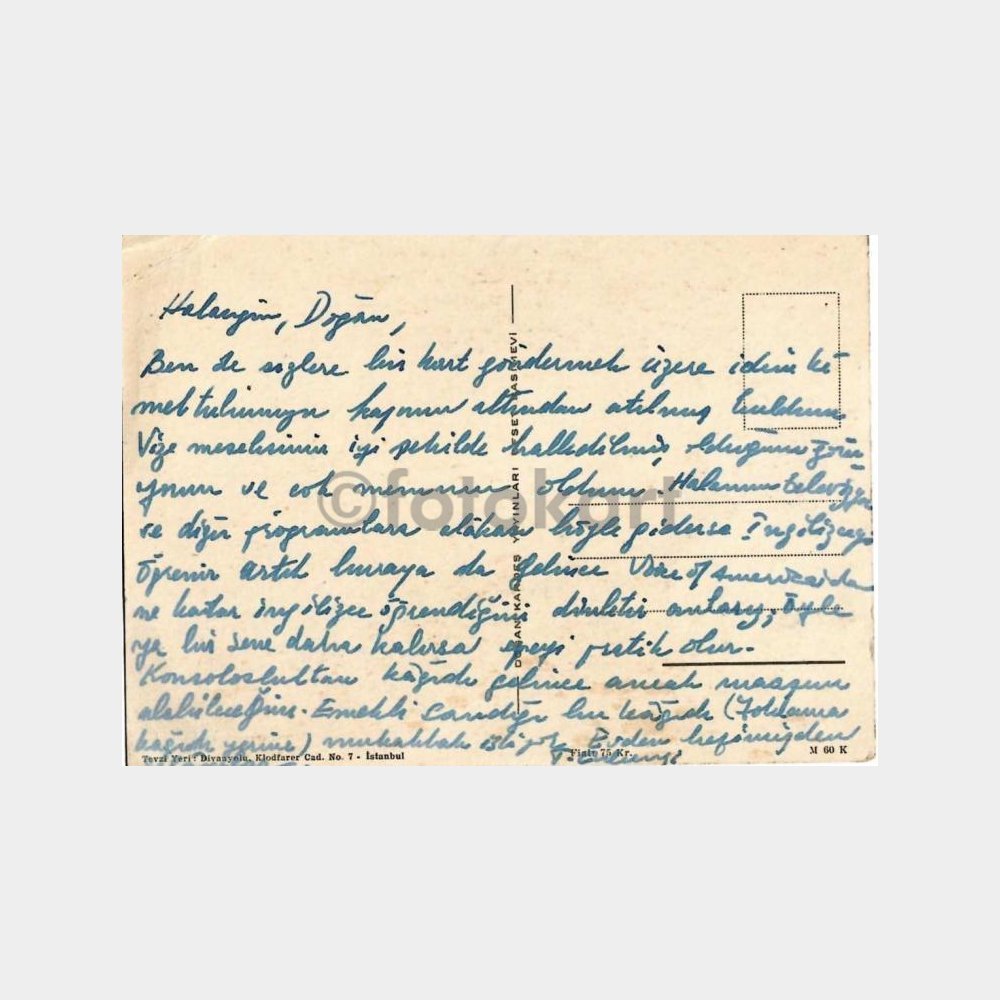 Halacığım, Doğan,
Ben de sizlere bir kart göndermek üzere idim ki
mektubunuzu kapının altından atılmış buldum
Vize meselesinin iyi şekilde halledilmiş olduğunu görü
yorum ve çok memnun oldum. Halamın televizyon
ve diğer programlara alâkası böyle giderse İngilizceyi
öğrenir artık buraya da gelince Voice of America'da
ne kadar ingilizce öğrendiğini dinletir anlarız, öyle
ya bir sene daha kalırsa epeyi pratik olur.
Konsolosluktan kâğıdı gelince ancak maaşını
alabileceğim. Emekli Sandığı bu kâğıdı (Yoklama
kâğıdı yerine) mutlaka istiyor.
DOĞAN KARDEŞ YAYINLARI OFSET BASIMEVİ
Tevzi Yeri: Divanyolu, Klodfarer Cad. No. 7 - İstanbul
Fiatı 75 Kr.
M 60 K
©fotokart